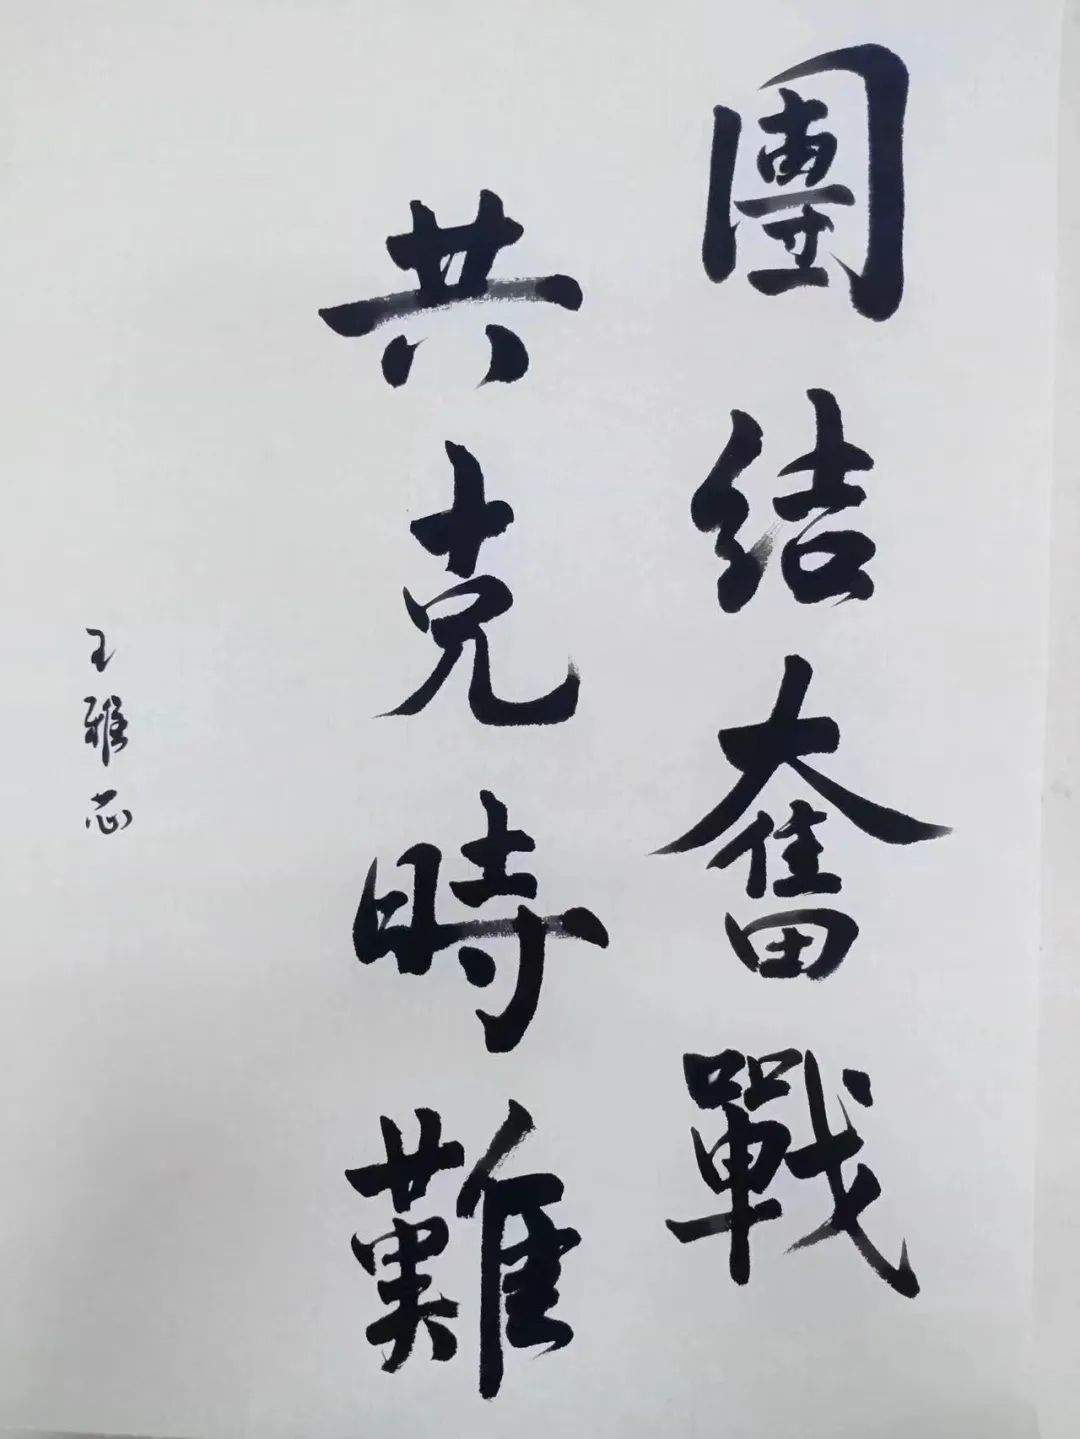 團结奮戰
共克時難
王雅芯